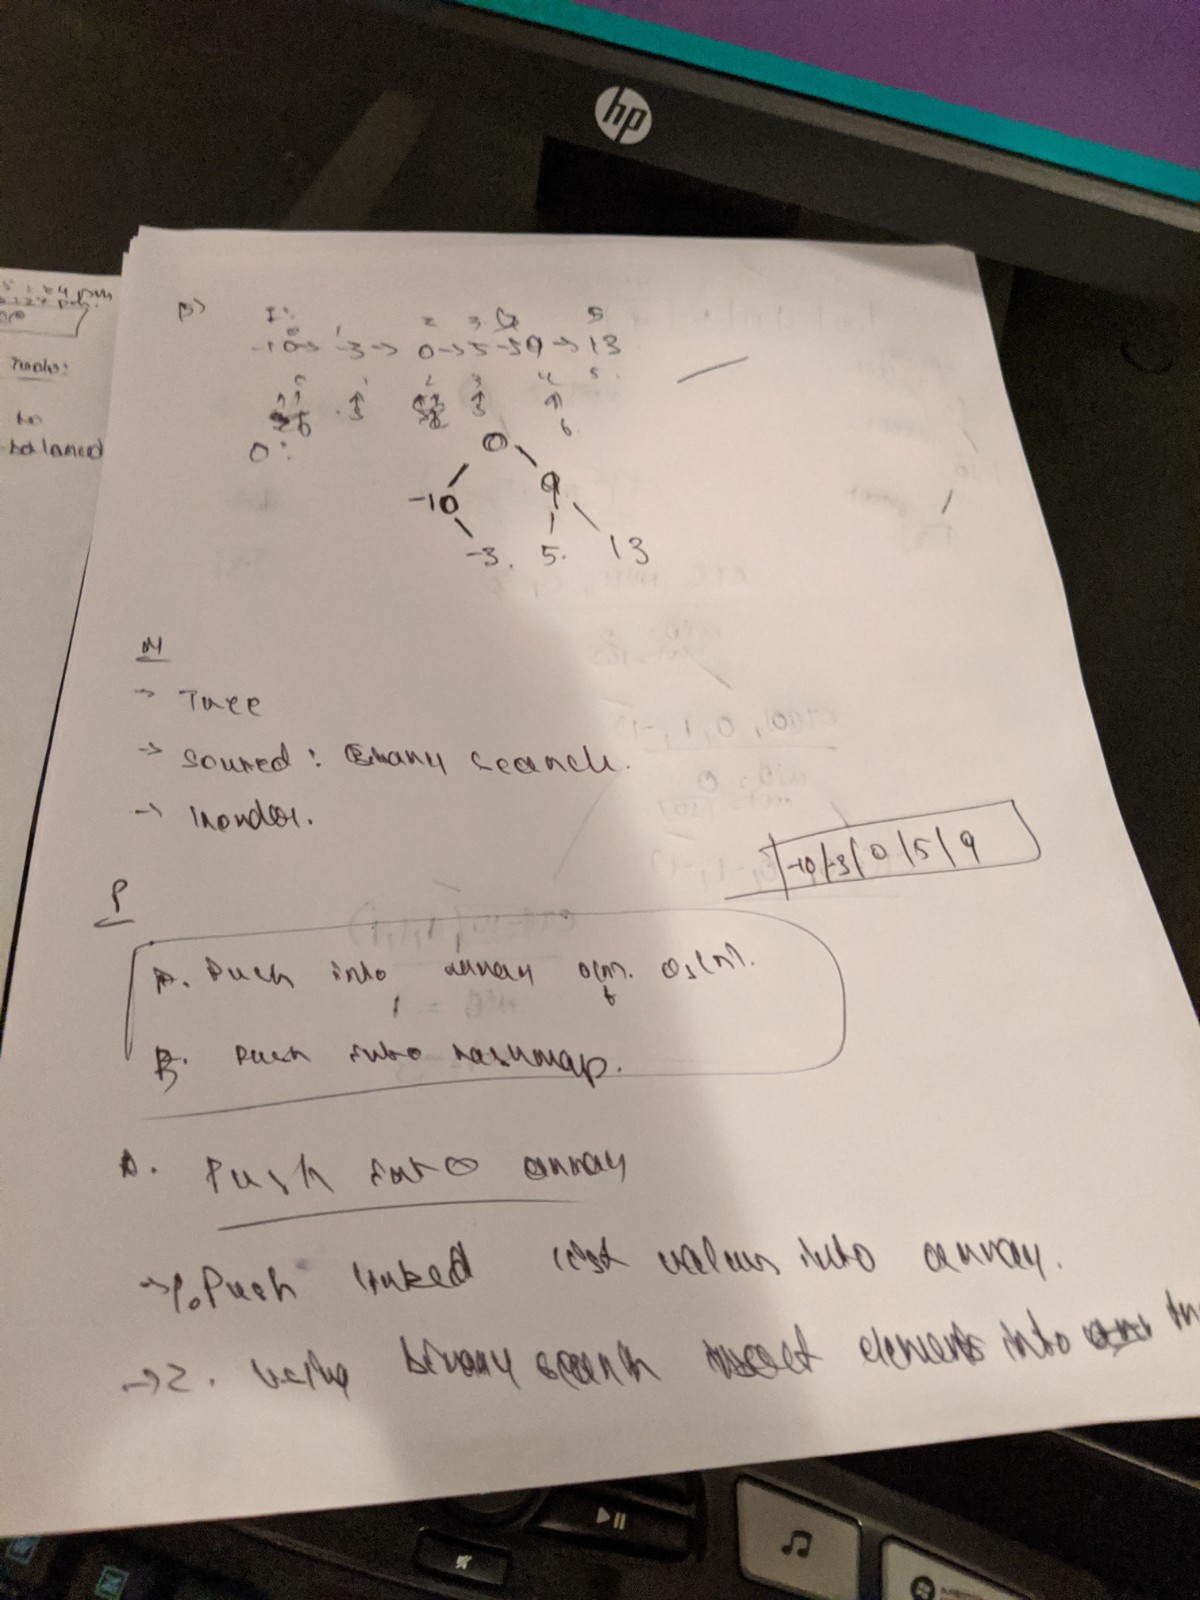 hp
I:
0 1 2 3 4 5
-10 → -3 → 0 → 5 → 9 → 13
0 1 2 3 4 5.
O:
0
-10 9
-3. 5. 13
M
→ Tree
→ Sorted: Binary search.
→ Inorder.
-10 / -3 / 0 / 5 / 9
P
A. Push into array O(n). Os(n).
B. Push into hashmap.
A. Push into array
→ 1. Push linked list values into array.
→ 2. using binary search insert elements into
balanced